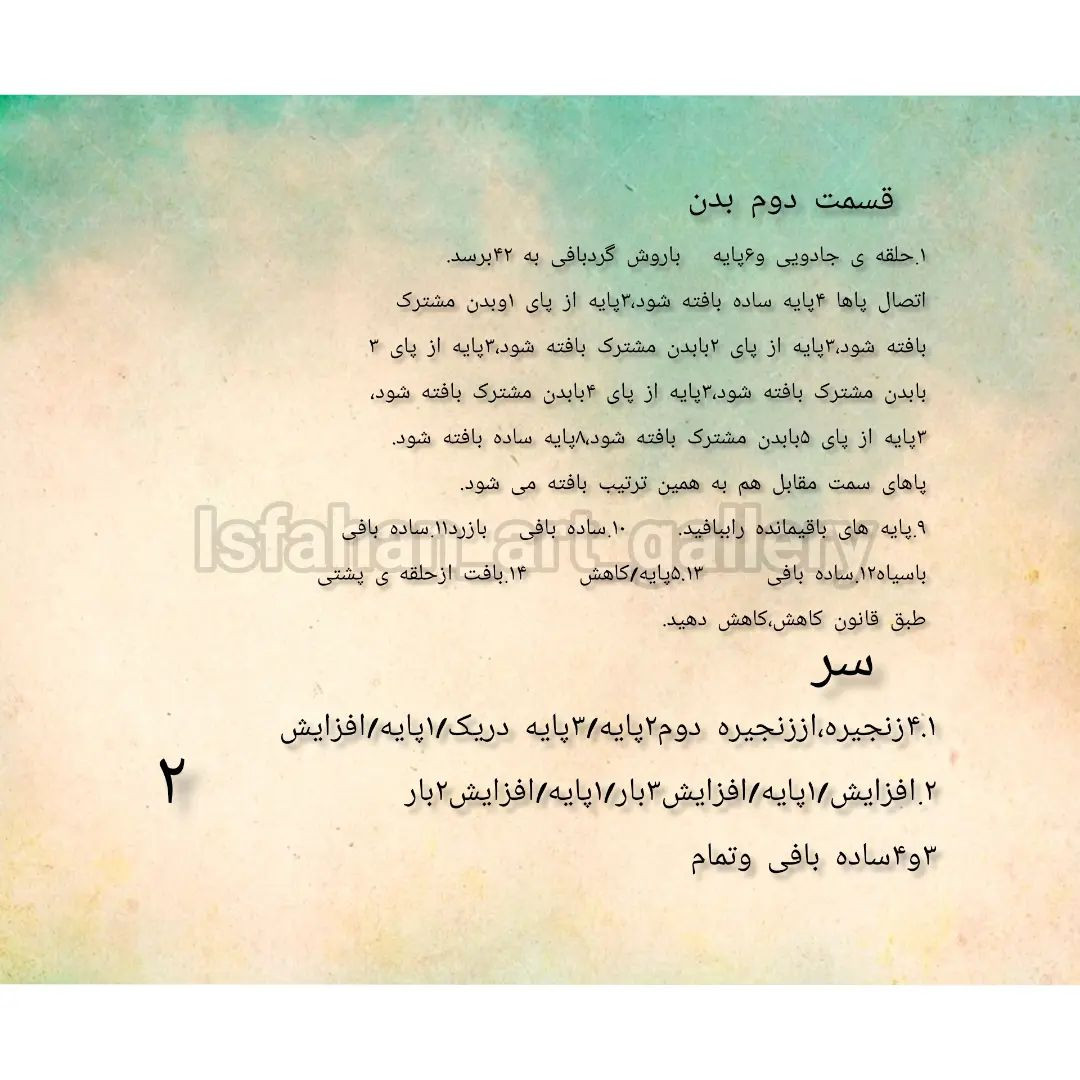 قسمت دوم بدن
۱.حلقه ی جادویی و۶پایه باروش گردبافی به ۴۲برسد.
اتصال پاها ۴پایه ساده بافته شود،۳پایه از پای ۱وبدن مشترک
بافته شود،۳پایه از پای ۲بابدن مشترک بافته شود،۳پایه از پای ۳
بابدن مشترک بافته شود،۳پایه از پای ۴بابدن مشترک بافته شود،
۳پایه از پای ۵بابدن مشترک بافته شود،۸پایه ساده بافته شود.
پاهای سمت مقابل هم به همین ترتیب بافته می شود.
۹.پایه های باقیمانده راببافید. ۱۰.ساده بافی بازرد۱۱.ساده بافی
باسیاه۱۲.ساده بافی ۵.۱۳پایه/کاهش ۱۴.بافت ازحلقه ی پشتی
طبق قانون کاهش،کاهش دهید.
Isfahan_art_gallery
سر
۴.۱زنجیره،اززنجیره دوم۲پایه/۳پایه دریک/۱پایه/افزایش
۲.افزایش/۱پایه/افزایش۳بار/۱پایه/افزایش۲بار
۳و۴ساده بافی وتمام
۲